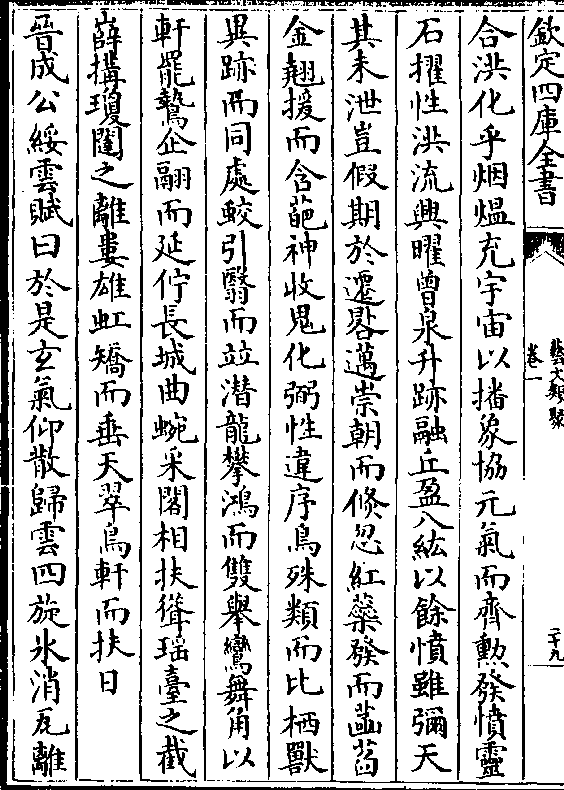 欽定四庫全書
藝文類聚
卷一
二十九
合洪化乎烟熅充宇宙以播象協元氣而齊勲發憤靈
石擢性洪流興曜曾泉升跡融丘盈八紘以餘憤雖彌天
其未泄豈假期於遷晷邁崇朝而倏忽紅蘂發而菡萏
金翹援而含葩神收鬼化弼性違序鳥殊類而比栖獸
異跡而同處鮫引翳而竝潜龍攀鴻而雙舉鸞舞角以
軒罷驚企翮而延佇長城曲蜿采閣相扶聳瑶臺之截
嶭搆瓊闥之離婁雄虹矯而垂天翠鳥軒而扶日
晉成公綏雲賦曰於是玄氣仰散歸雲四旋氷消瓦離